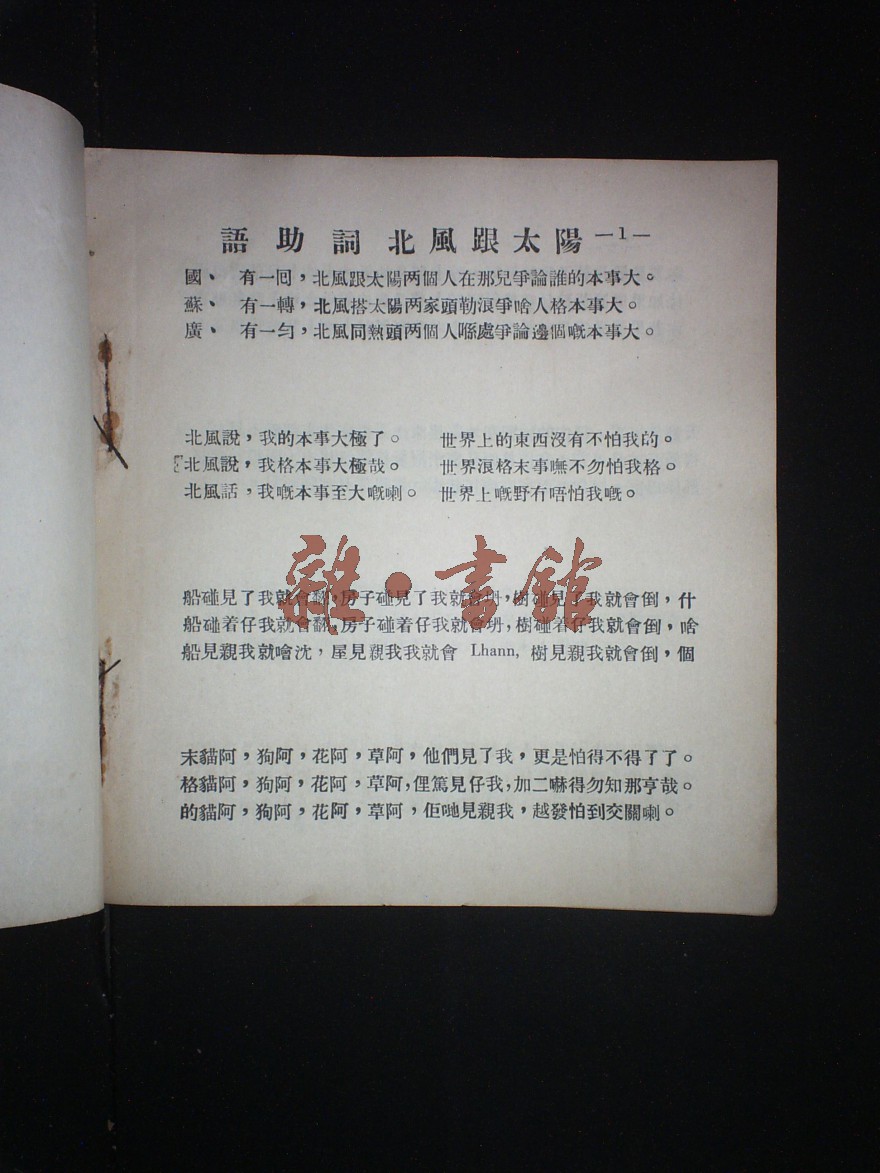 語助詞北風跟太陽 —1—
國、 有一回，北風跟太陽两個人在那兒爭論誰的本事大。
蘇、 有一轉，北風搭太陽两家頭勒浪爭啥人格本事大。
廣、 有一勻，北風同熱頭两個人喺處爭論邊個嘅本事大。
北風說，我的本事大極了。 世界上的東西沒有不怕我的。
北風說，我格本事大極哉。 世界浪格末事嘸不勿怕我格。
北風話，我嘅本事至大嘅喇。 世界上嘅野冇唔怕我嘅。
雜·書館
船碰見了我就會翻，房子碰見了我就會坍，樹碰見了我就會倒，什
船碰着仔我就會翻，房子碰着仔我就會坍，樹碰着仔我就會倒，啥
船見親我就噲沈，屋見親我我就會 Lhann, 樹見親我就會倒，個
末貓阿，狗阿，花阿，草阿，他們見了我，更是怕得不得了了。
格貓阿，狗阿，花阿，草阿，俚篤見仔我，加二嚇得勿知那亨哉。
的貓阿，狗阿，花阿，草阿，佢哋見親我，越發怕到交關喇。